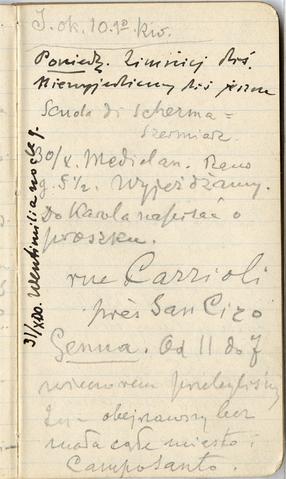 J. ok. 10.go kw.
Poniedz. Zimniej dziś.
Niewyjedziemy dziś jeszcze
Scuola di Scherma =
Szermierz.
30/X. Medielan. Rano
g. 5½. Wyjeżdżamy.
Do Karola napisać o
proszku.
rue Carrioli
près San Cizo
Genua. Od 11 do 7
wieczorem
obejrzawszy bez
mała całe miasto i
Camposanto.
31/XII. Wentimilia nocleg.